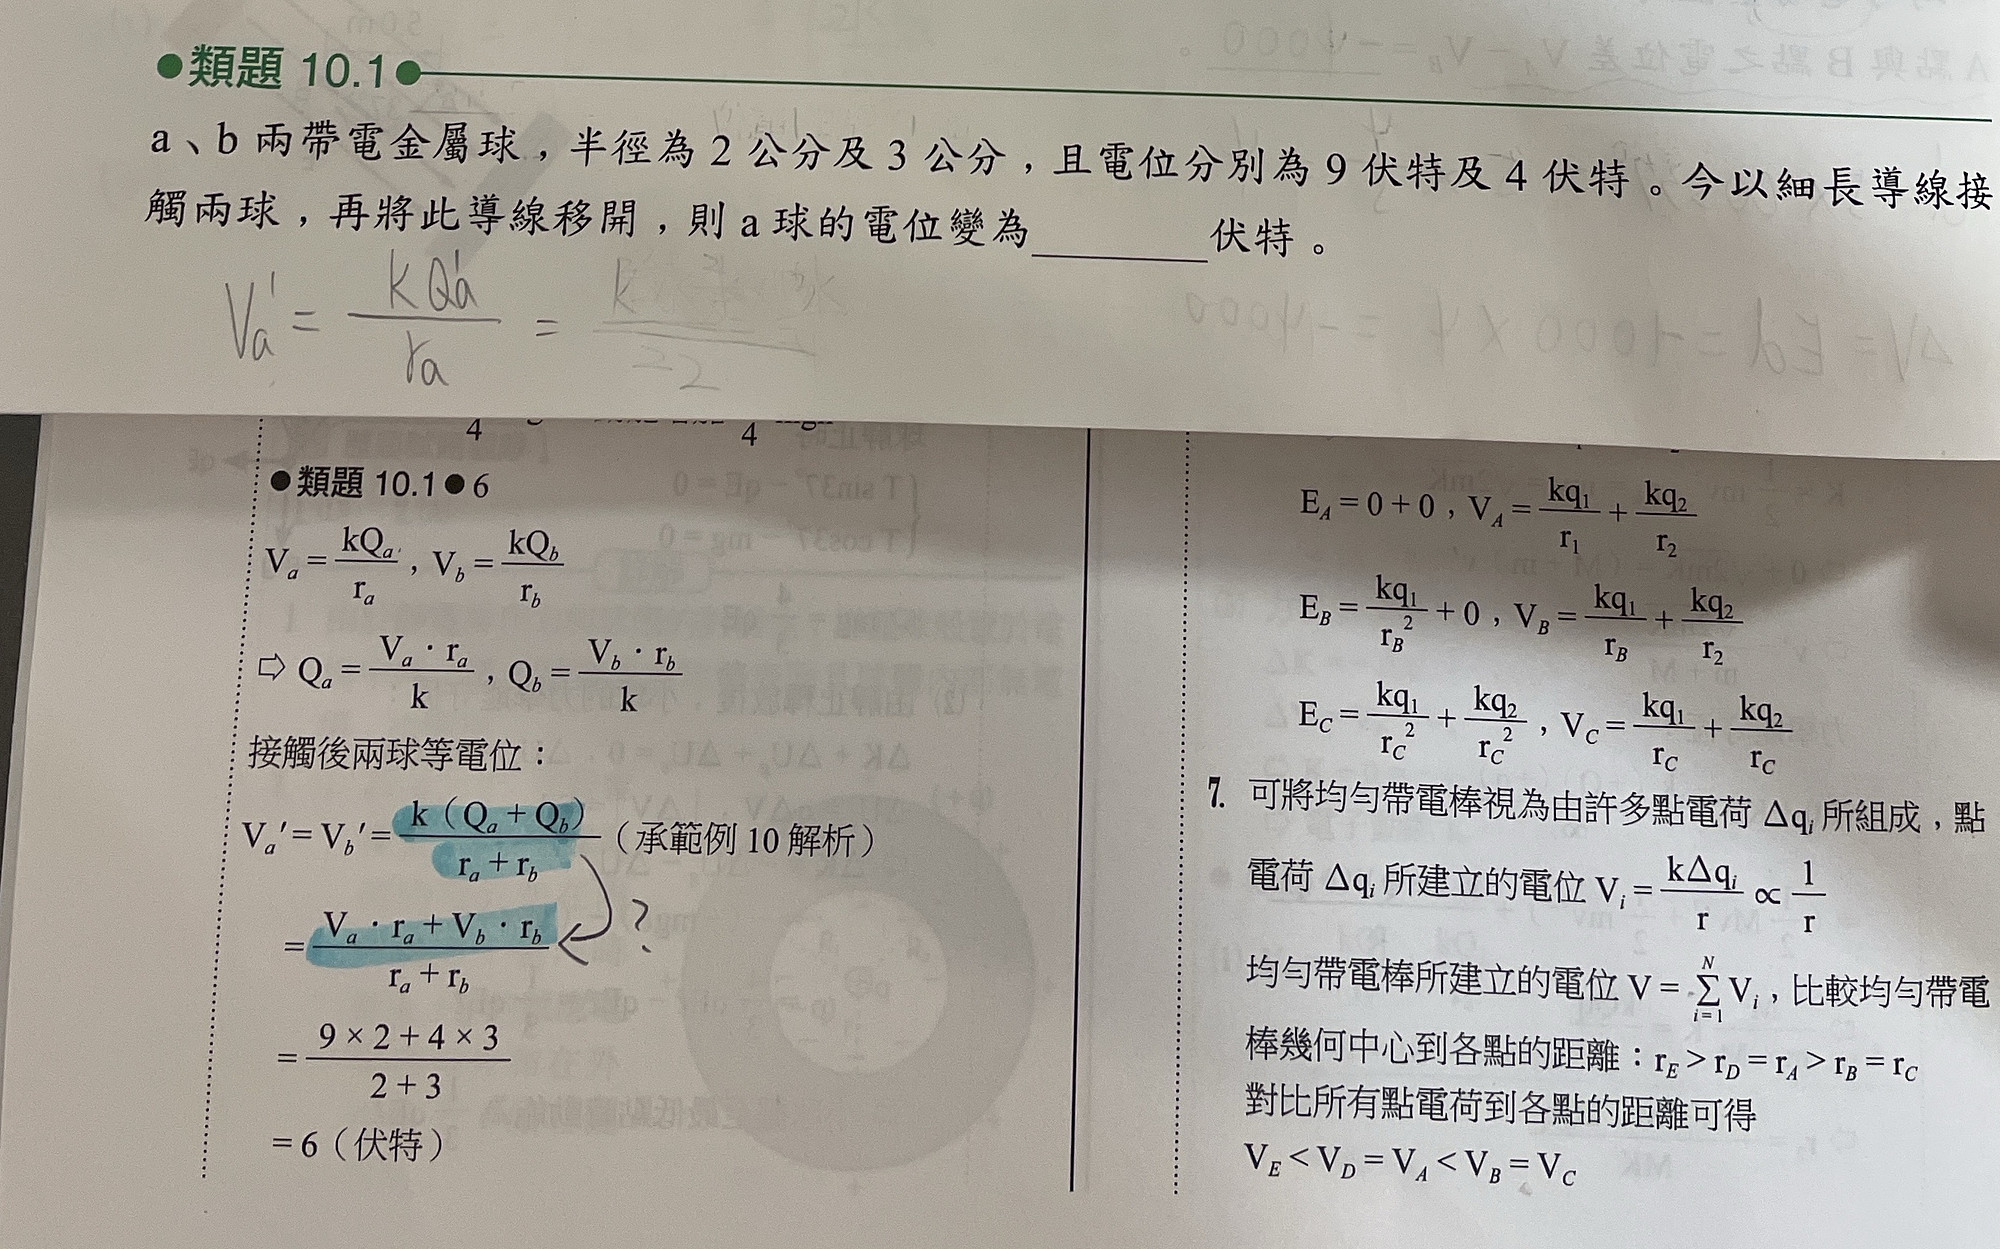 ●類題 10.1●
a、b 兩帶電金屬球，半徑為 2 公分及 3 公分，且電位分別為 9 伏特及 4 伏特。今以細長導線接
觸兩球，再將此導線移開，則 a 球的電位變為________伏特。
Va' = kQa' / ra = k / 2
●類題 10.1●6
Va = kQa / ra，Vb = kQb / rb
⇨ Qa = Va · ra / k，Qb = Vb · rb / k
接觸後兩球等電位：
Va' = Vb' = k（Qa + Qb） / ra + rb（承範例 10 解析）
= Va · ra + Vb · rb / ra + rb ?
= 9 × 2 + 4 × 3 / 2 + 3
= 6（伏特）
EA = 0 + 0，VA = kq1 / r1 + kq2 / r2
EB = kq1 / rB² + 0，VB = kq1 / rB + kq2 / r2
EC = kq1 / rC² + kq2 / rC²，VC = kq1 / rC + kq2 / rC
7. 可將均勻帶電棒視為由許多點電荷 Δqi 所組成，點
電荷 Δqi 所建立的電位 Vi = kΔqi / r ∝ 1 / r
均勻帶電棒所建立的電位 V = Σ(i=1→N) Vi，比較均勻帶電
棒幾何中心到各點的距離：rE > rD = rA > rB = rC
對比所有點電荷到各點的距離可得
VE < VD = VA < VB = VC